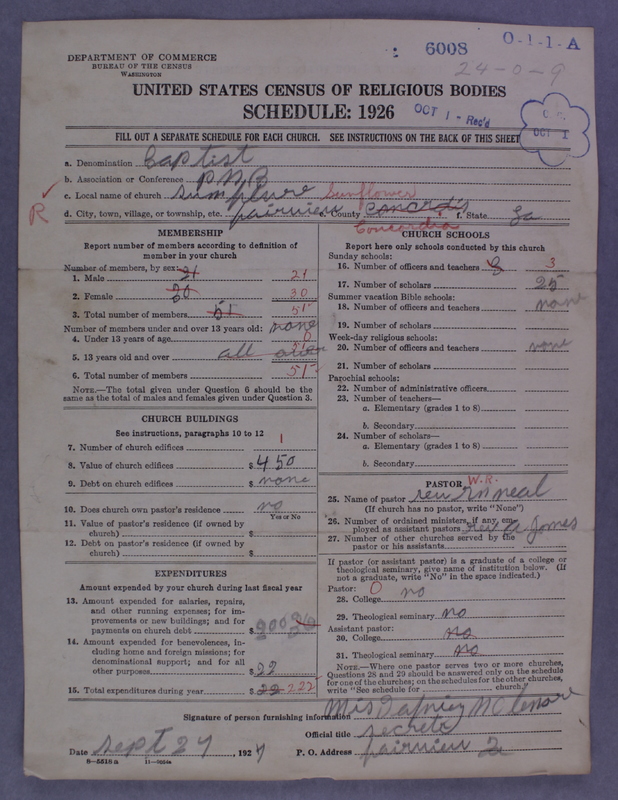 6008 O-1-1-A
DEPARTMENT OF COMMERCE
BUREAU OF THE CENSUS
WASHINGTON
24-0-9
UNITED STATES CENSUS OF RELIGIOUS BODIES
SCHEDULE: 1926
OCT 1 - Rec'd
OCT 1
FILL OUT A SEPARATE SCHEDULE FOR EACH CHURCH. SEE INSTRUCTIONS ON THE BACK OF THIS SHEET
a. Denomination baptist
b. Association or Conference
c. Local name of church Sunflower
R d. City, town, village, or township, etc. fairview e. County Concordia f. State. La
MEMBERSHIP
Report number of members according to definition of
member in your church
Number of members, by sex:
1. Male 21 21
2. Female 30 30
3. Total number of members 51 51
Number of members under and over 13 years old: none
4. Under 13 years of age 0
5. 13 years old and over all over 51
6. Total number of members 51
NOTE.—The total given under Question 6 should be the
same as the total of males and females given under Question 3.
CHURCH BUILDINGS
See instructions, paragraphs 10 to 12
7. Number of church edifices 1
8. Value of church edifices $ 450
9. Debt on church edifices $ none
10. Does church own pastor's residence no
Yes or No
11. Value of pastor's residence (if owned by
church) $
12. Debt on pastor's residence (if owned by
church) $
EXPENDITURES
Amount expended by your church during last fiscal year
13. Amount expended for salaries, repairs,
and other running expenses; for im-
provements or new buildings; and for
payments on church debt $
14. Amount expended for benevolences, in-
cluding home and foreign missions; for
denominational support; and for all
other purposes $ 22
15. Total expenditures during year $ 22 222
CHURCH SCHOOLS
Report here only schools conducted by this church
Sunday schools:
16. Number of officers and teachers 3 3
17. Number of scholars 25
Summer vacation Bible schools:
18. Number of officers and teachers none
19. Number of scholars
Week-day religious schools:
20. Number of officers and teachers none
21. Number of scholars
Parochial schools:
22. Number of administrative officers
23. Number of teachers—
a. Elementary (grades 1 to 8)
b. Secondary
24. Number of scholars—
a. Elementary (grades 1 to 8)
b. Secondary
PASTOR
W.R.
25. Name of pastor neal
(If church has no pastor, write "None")
26. Number of ordained ministers, if any, em-
ployed as assistant pastors Jones
27. Number of other churches served by the
pastor or his assistants
If pastor (or assistant pastor) is a graduate of a college or
theological seminary, give name of institution below. (If
not a graduate, write "No" in the space indicated.)
Pastor: 0
28. College no
29. Theological seminary no
Assistant pastor:
30. College no
31. Theological seminary no
NOTE.—Where one pastor serves two or more churches,
Questions 28 and 29 should be answered only on the schedule
for one of the churches; on the schedules for the other churches,
write "See schedule for church."
Signature of person furnishing information Miss
Official title secreta
Date Sept 27, 1927 P. O. Address fairview
8-5518a